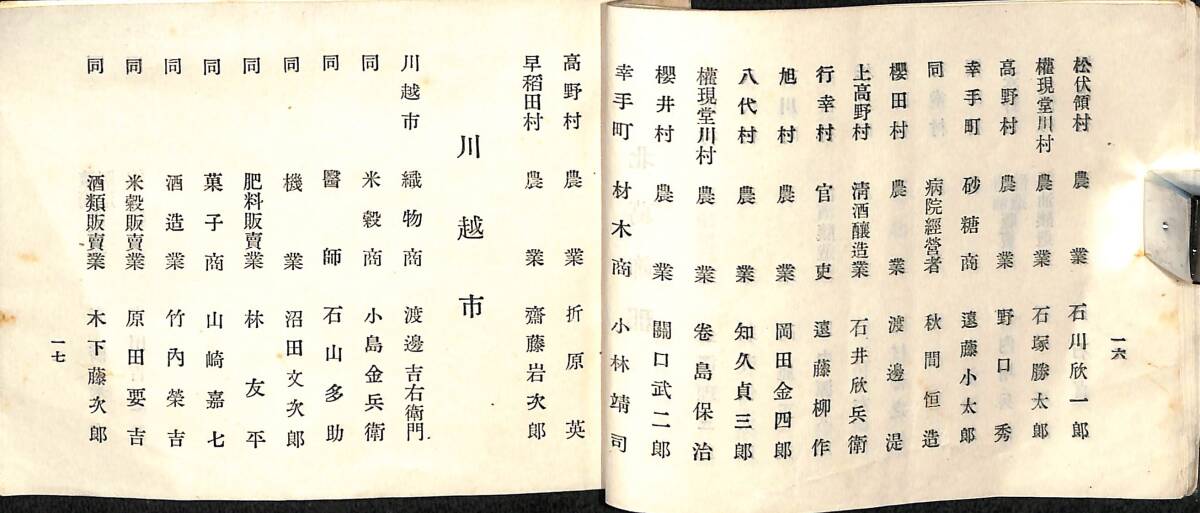 松伏領村 農業 石川欣一郎
權現堂川村 農業 石塚勝太郎
高野村 農業 野口秀
幸手町 砂糖商 遠藤小太郎
同 病院經營者 秋間恒造
櫻田村 農業 渡邊湜
上高野村 清酒釀造業 石井欣兵衛
行幸村 官吏 遠藤柳作
旭川村 農業 岡田金四郎
八代村 農業 知久貞三郎
權現堂川村 農業 卷島保治
櫻井村 農業 關口武二郎
幸手町 材木商 小林靖司
一六
高野村 農業 折原英
早稻田村 農業 齋藤岩次郎
川越市
川越市 織物商 渡邊吉右衛門
同 米穀商 小島金兵衛
同 醫師 石山多助
同 機業 沼田文次郎
同 肥料販賣業 林友平
同 菓子商 山崎嘉七
同 酒造業 竹內榮吉
同 米穀販賣業 原田要吉
同 酒類販賣業 木下藤次郎
一七